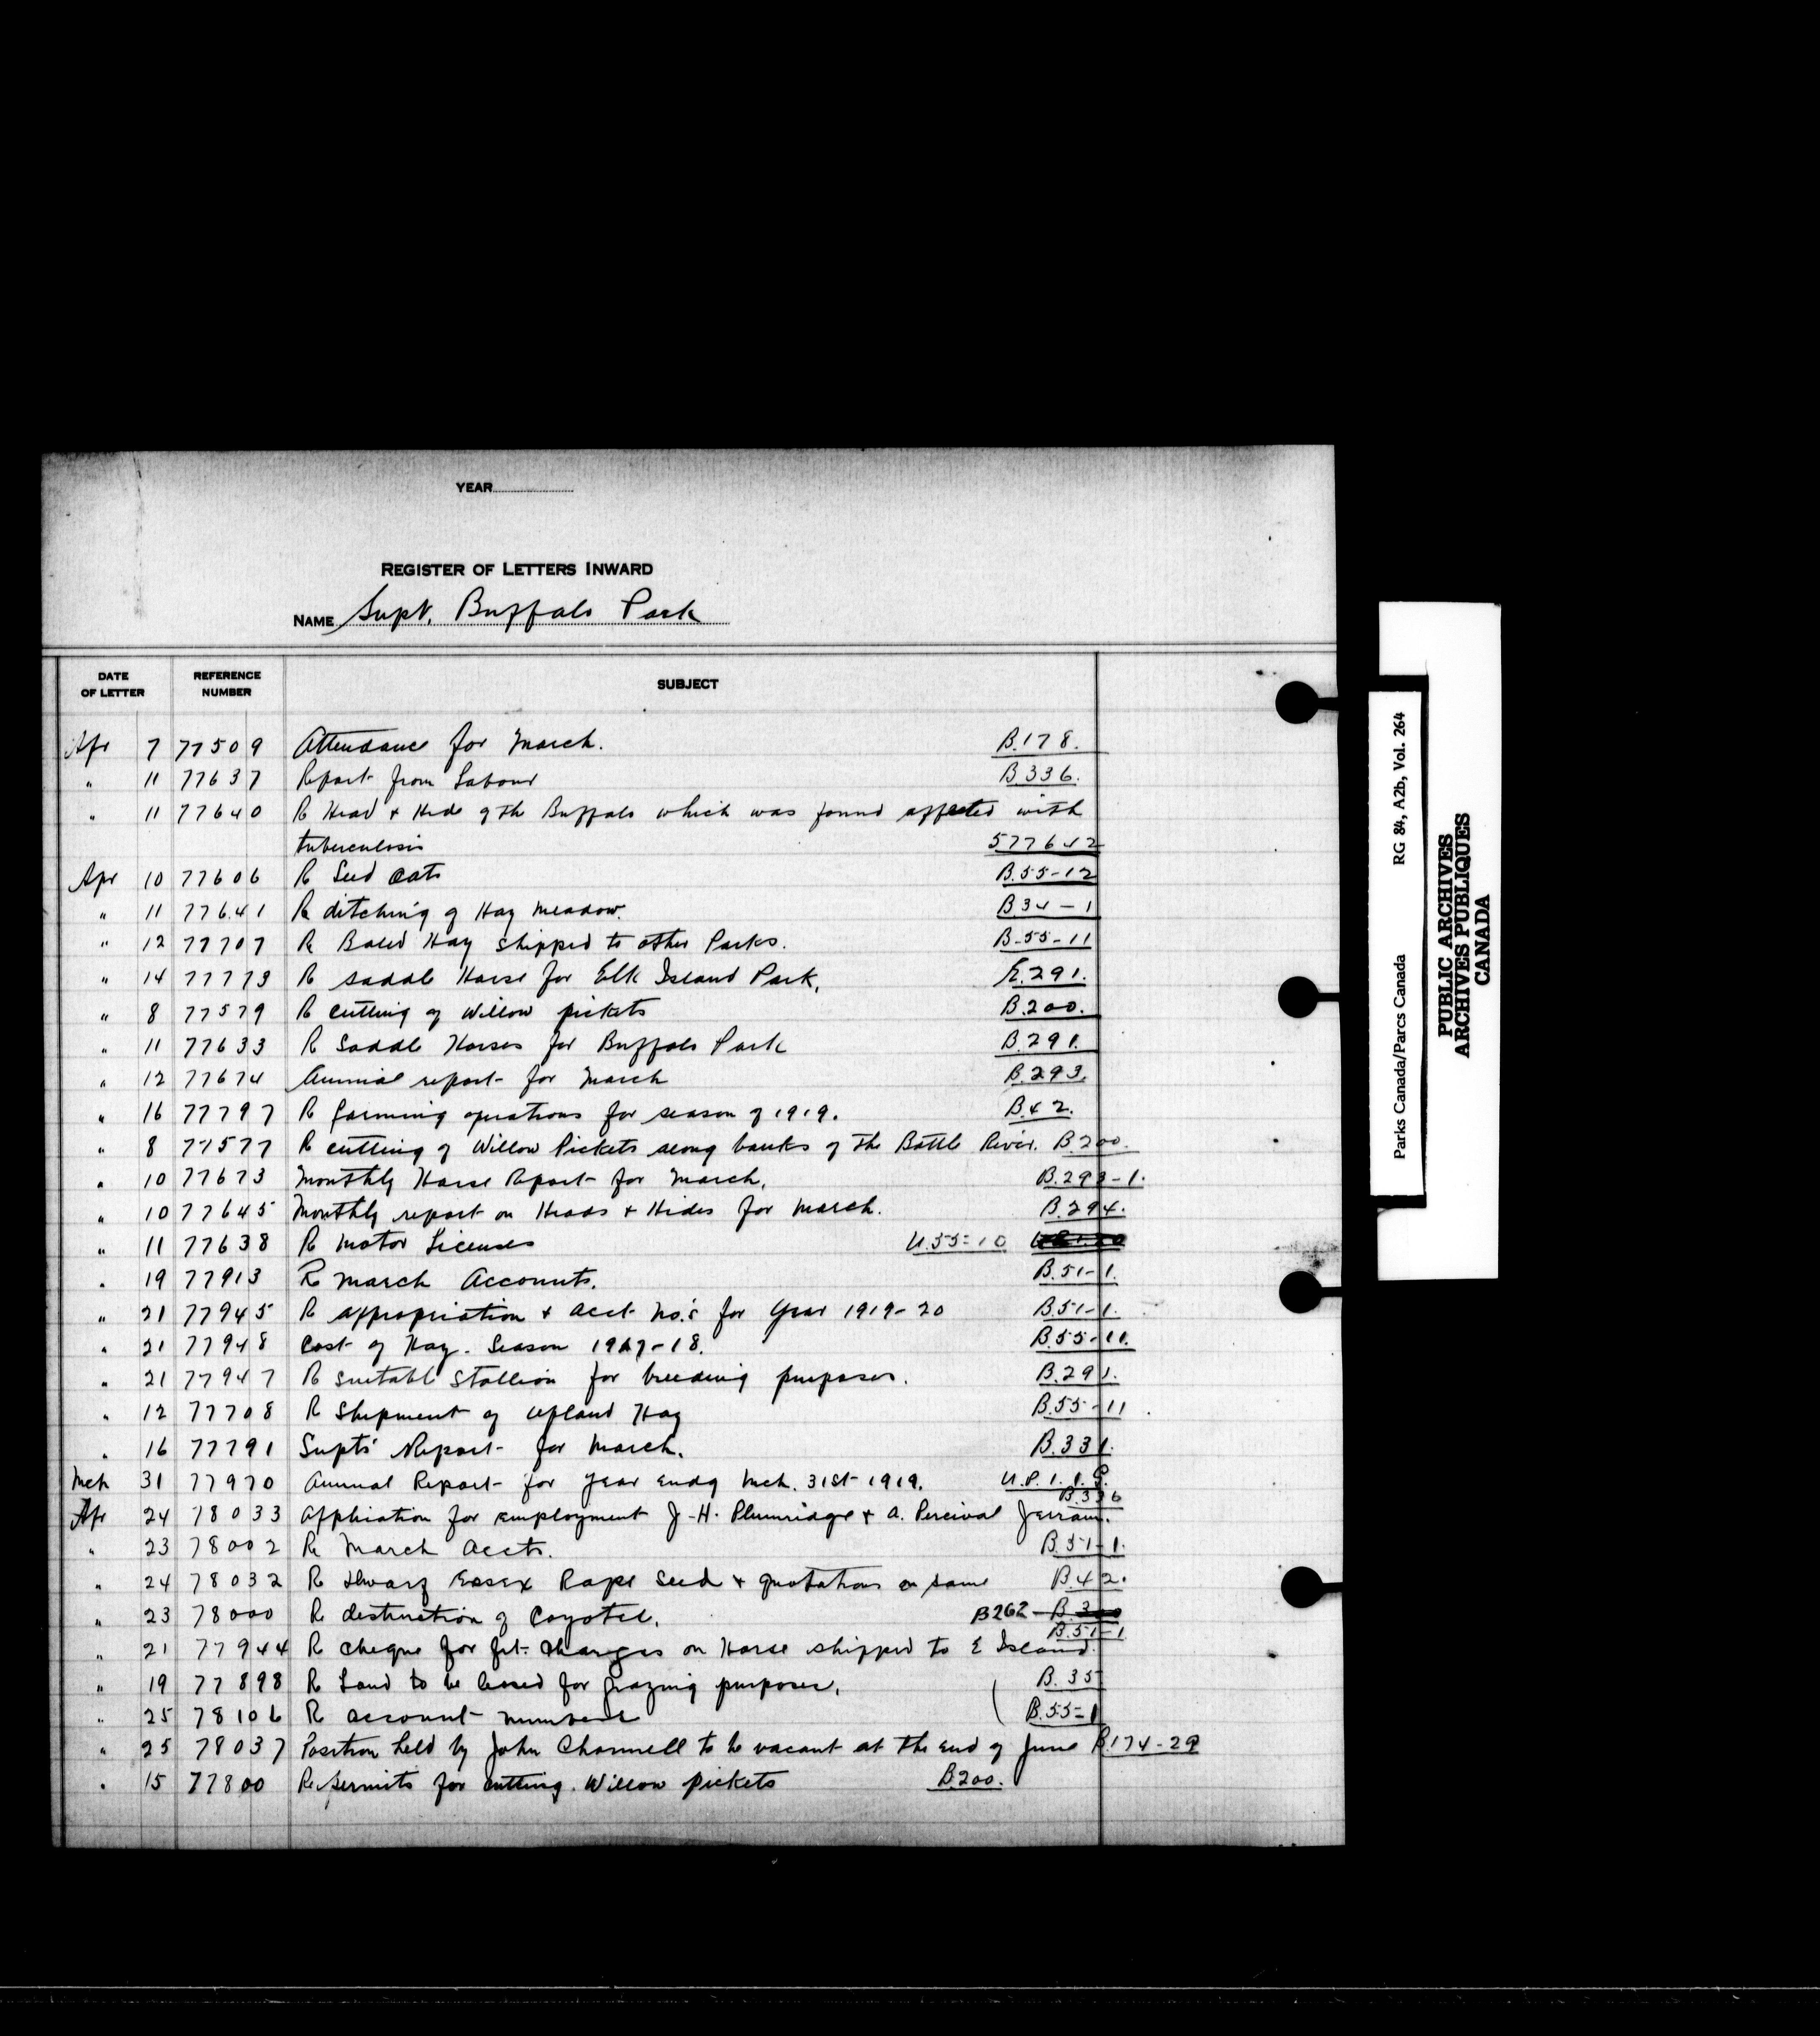 YEAR
REGISTER OF LETTERS INWARD
NAME Supt. Buffalo Park
DATE OF LETTER REFERENCE NUMBER SUBJECT
Apr 7 77509 Attendance for March. B.178.
" 11 77637 Report from Labour B336.
" 11 77640 R Head & Hide of the Buffalo which was found affected with
tuberculosis 577642
Apr 10 77606 R Seed Oats B.55-12
" 11 77641 R ditching of Hay Meadow. B34-1
" 12 77707 R Baled Hay shipped to other Parks. B-55-11
" 14 77773 R saddle Horse for Elk Island Park, E.291.
" 8 77579 R cutting of Willow pickets B.200.
" 11 77633 R Saddle Horses for Buffalo Park B.291.
" 12 77674 Annual report for March B.293.
" 16 77797 R farming operations for season of 1919. B.42.
" 8 77577 R cutting of Willow Pickets along banks of the Battle River. B.200.
" 10 77673 Monthly Horse Report for March, B.293-1.
" 10 77645 Monthly report on Heads & Hides for March. B.294.
" 11 77638 R Motor Licenses U.55-10
" 19 77913 R March Accounts. B.51-1.
" 21 77945 R appropriation & acct No.s for Year 1919-20 B.51-1.
" 21 77948 Cost of Hay. Season 1917-18. B.55-11.
" 21 77947 R suitable Stallion for breeding purposes. B.291.
" 12 77708 R Shipment of Upland Hay B.55-11.
" 16 77791 Supts' Report for March. B.331.
Mch 31 77970 Annual Report for Year endg Mch. 31st 1919. U.P.1.1.G.
B.336
Apr 24 78033 Application for employment J.H. Plumridge & A. Percival Jerram.
" 23 78002 R March Accts. B.51-1.
" 24 78032 R Dwarf Essex Rape Seed & quotations on same B.42.
" 23 78000 R destruction of Coyotes. B262 B.300
B.51-1.
" 21 77944 R cheque for frt. charges on Horse shipped to E Island.
" 19 77898 R Land to be leased for grazing purposes, B.35
" 25 78106 R account numbers B.55-1
" 25 78037 Position held by John Channell to be vacant at the end of June B.174-29
" 15 77800 Re permits for cutting Willow pickets B.200.
Parks Canada/Parcs Canada RG 84, A2b, Vol. 264
PUBLIC ARCHIVES
ARCHIVES PUBLIQUES
CANADA